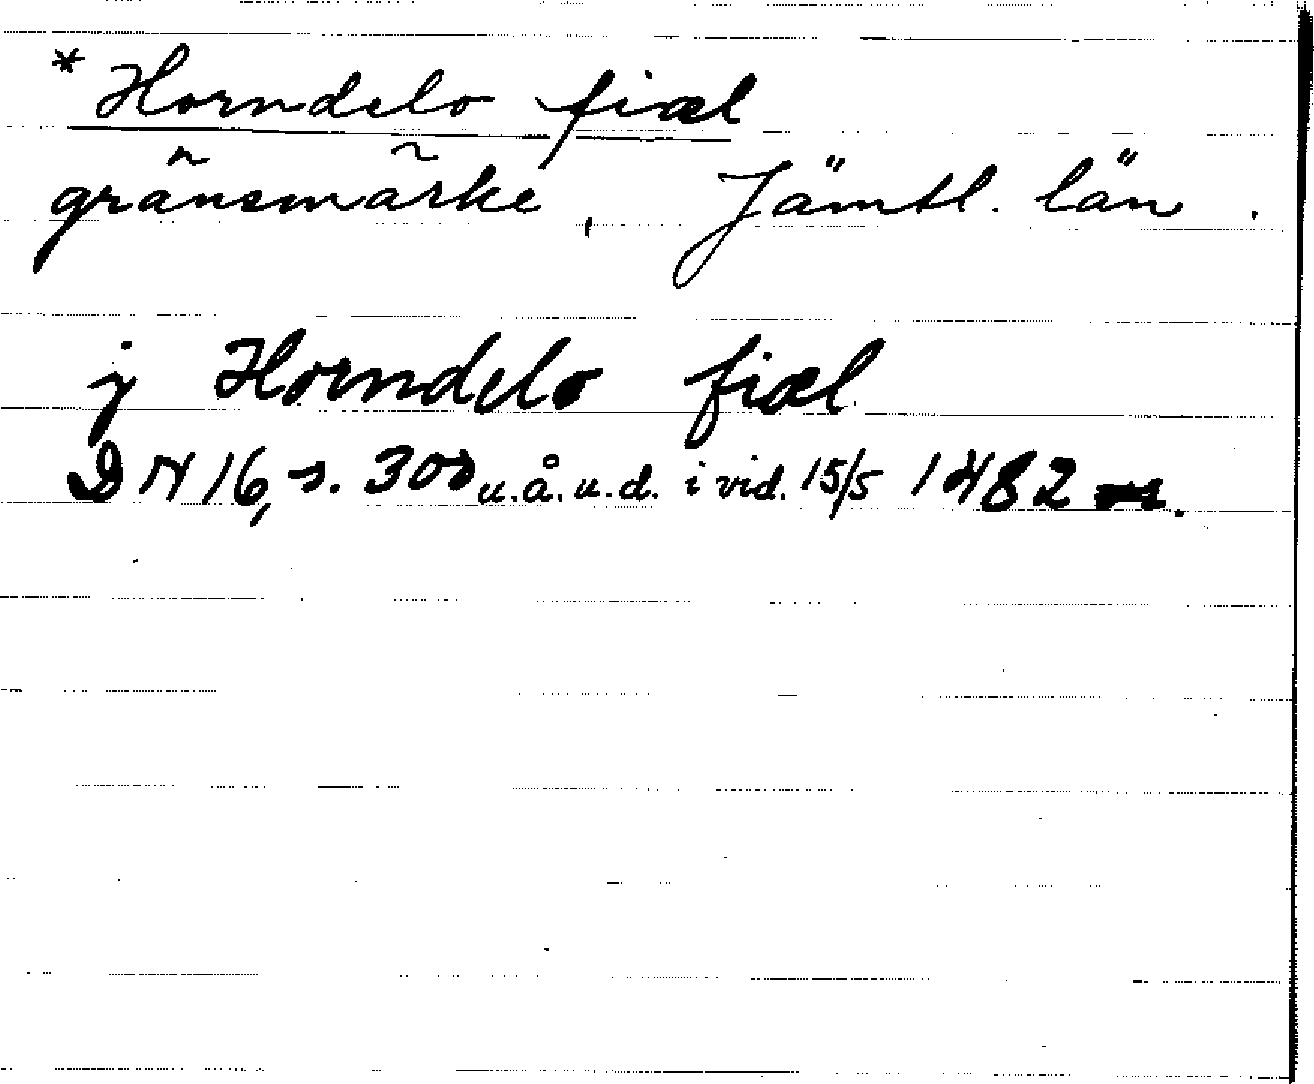 * Horndelo fiæl
gränsmärke, Jämtl. län.
j Horndelo fiæl
DN 16, s. 300 u.å.u.d. i vid. 15/5 1482